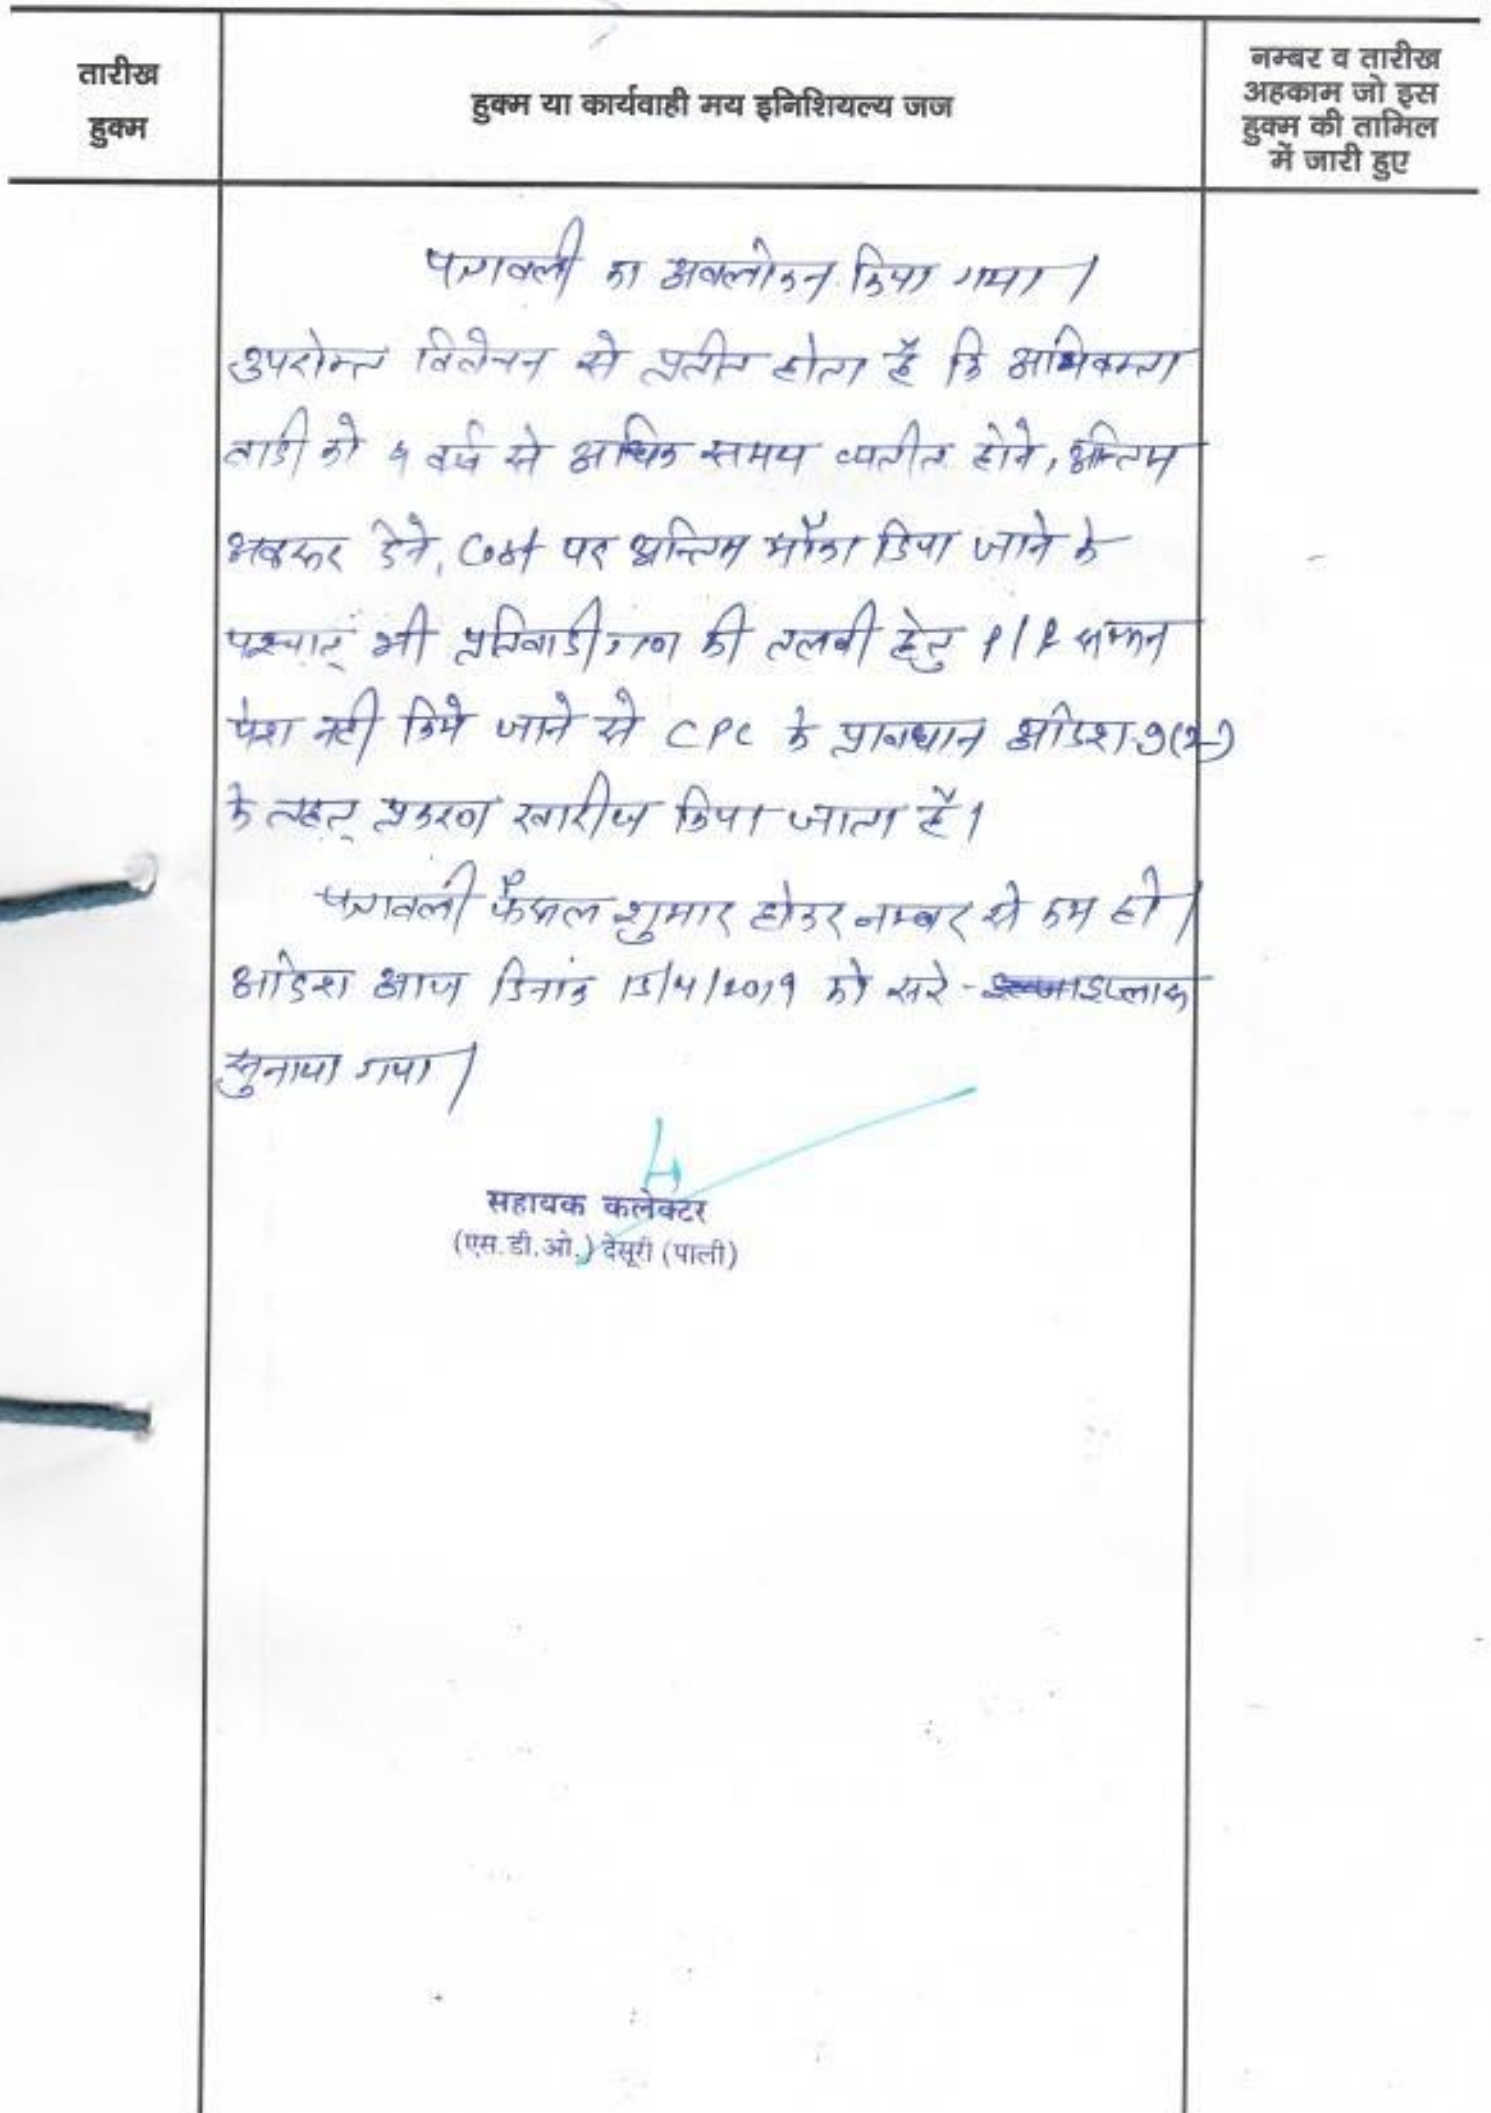 तारीख
हुक्म
हुक्म या कार्यवाही मय इनिशियल्य जज
नम्बर व तारीख
अहकाम जो इस
हुक्म की तामिल
में जारी हुए
पत्रावली का अवलोकन किया गया।
उपरोक्त विवेचन से प्रतीत होता है कि अभिवक्ता
वादी को 5 वर्ष से अधिक समय व्यतीत होने, अन्तिम
अवसर देने, Cost पर अन्तिम मौका दिया जाने के
पश्चात् भी प्रतिवादीगण की तलबी हेतु P/F सम्मन
पेश नही किये जाने से CPC के प्रावधान आदेश 9(2)
के तहत् प्रकरण खारीज किया जाता है।
पत्रावली फैसल शुमार होकर नम्बर से कम हो।
आदेश आज दिनांक 15/4/2019 को सरे-इजलास
सुनाया गया।
सहायक कलेक्टर
(एस.डी.ओ.) देसूरी (पाली)